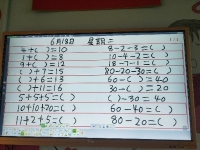 6月18日 星期二
4+( )=10 8-2-3=( )
1+( )=8 10-4-2=( )
9+( )=12 18-7-1=( )
( )+7=15 80-20-30=( )
( )+6=13 60-( )=40
( )+11=16 30-( )=20
5+5+5=( ) ( )-30=40
10+10+20=( ) 60-40=( )
11+2+5=( ) 80-20=( )